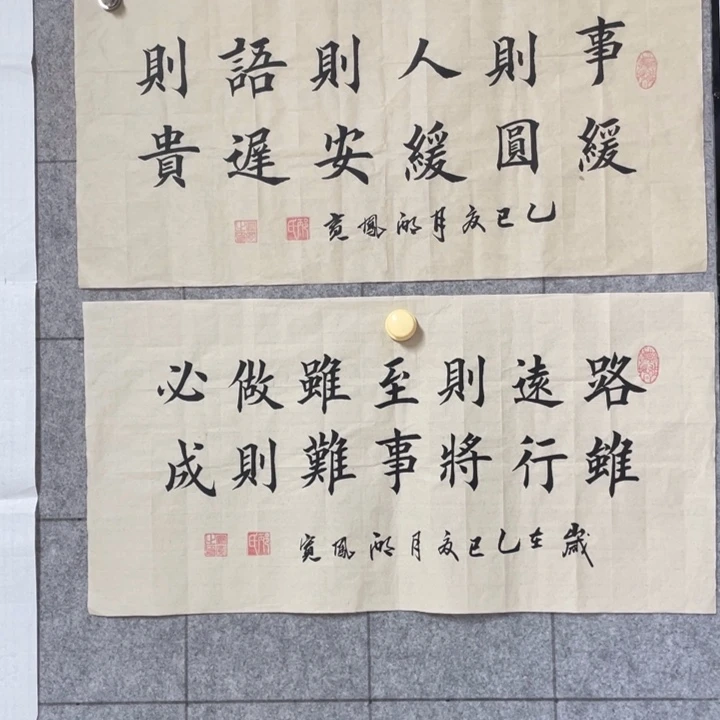 事緩
則圓
人緩
則安
語遲
則貴
乙巳夏月鳳
路雖
遠行
則將
至事
雖難
做則
必成
歲在乙巳夏月鳳